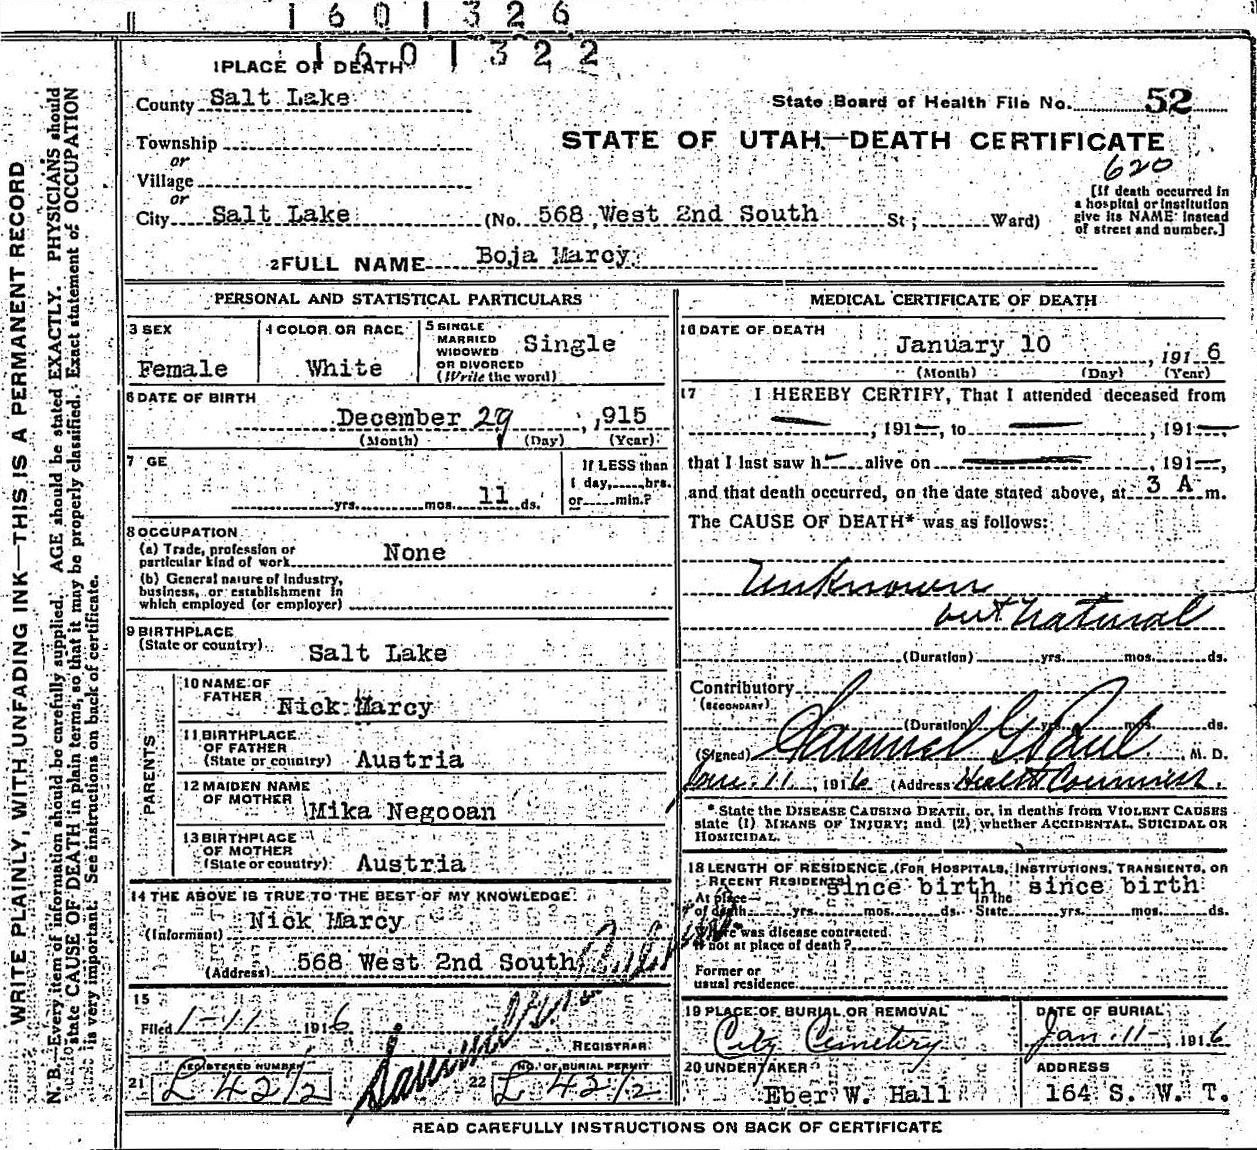 1601326
1601322
1 PLACE OF DEATH
County Salt Lake
State Board of Health File No. 52
Township
or
Village
or
STATE OF UTAH—DEATH CERTIFICATE
620
[If death occurred in
a hospital or institution
give its NAME instead
of street and number.]
City Salt Lake (No. 568 West 2nd South St; Ward)
2 FULL NAME Boja Marcy
PERSONAL AND STATISTICAL PARTICULARS
3 SEX
Female
4 COLOR OR RACE
White
5 SINGLE
MARRIED
WIDOWED
OR DIVORCED
(Write the word)
Single
6 DATE OF BIRTH
December 29, 1915
(Month) (Day) (Year)
7 GE
yrs. mos. 11 ds.
If LESS than
1 day, hrs.
or min.?
8 OCCUPATION
(a) Trade, profession or
particular kind of work None
(b) General nature of industry,
business, or establishment in
which employed (or employer)
9 BIRTHPLACE
(State or country) Salt Lake
PARENTS
10 NAME OF
FATHER Nick Marcy
11 BIRTHPLACE
OF FATHER
(State or country) Austria
12 MAIDEN NAME
OF MOTHER Mika Negooan
13 BIRTHPLACE
OF MOTHER
(State or country) Austria
14 THE ABOVE IS TRUE TO THE BEST OF MY KNOWLEDGE
(Informant) Nick Marcy
(Address) 568 West 2nd South
15
Filed 1-11 1916
REGISTRAR
21 REGISTERED NUMBER
L 42 1/2
22 NO. OF BURIAL PERMIT
L 42 1/2
MEDICAL CERTIFICATE OF DEATH
16 DATE OF DEATH
January 10, 1916
(Month) (Day) (Year)
17 I HEREBY CERTIFY, That I attended deceased from
—, 191—, to —, 191—,
that I last saw h— alive on —, 191—,
and that death occurred, on the date stated above, at 3 A m.
The CAUSE OF DEATH* was as follows:
Unknown
but natural
(Duration) yrs. mos. ds.
Contributory
(SECONDARY)
(Duration) yrs. mos. ds.
(Signed) Samuel G Paul, M. D.
Jan. 11, 1916 (Address) Health Commiss
* State the DISEASE CAUSING DEATH, or, in deaths from VIOLENT CAUSES
state (1) MEANS OF INJURY; and (2) whether ACCIDENTAL, SUICIDAL OR
HOMICIDAL.
18 LENGTH OF RESIDENCE (FOR HOSPITALS, INSTITUTIONS, TRANSIENTS, OR
RECENT RESIDENTS) since birth since birth
At place In the
of death yrs. mos. ds. State yrs. mos. ds.
was disease contracted
not at place of death?
Former or
usual residence
19 PLACE OF BURIAL OR REMOVAL
City Cemetery
DATE OF BURIAL
Jan. 11-, 1916
20 UNDERTAKER
Eber W. Hall
ADDRESS
164 S. W. T.
READ CAREFULLY INSTRUCTIONS ON BACK OF CERTIFICATE
WRITE PLAINLY, WITH UNFADING INK—THIS IS A PERMANENT RECORD
N. B.—Every item of information should be carefully supplied. AGE should be stated EXACTLY. PHYSICIANS should
state CAUSE OF DEATH in plain terms, so that it may be properly classified. Exact statement of OCCUPATION
is very important. See instructions on back of certificate.